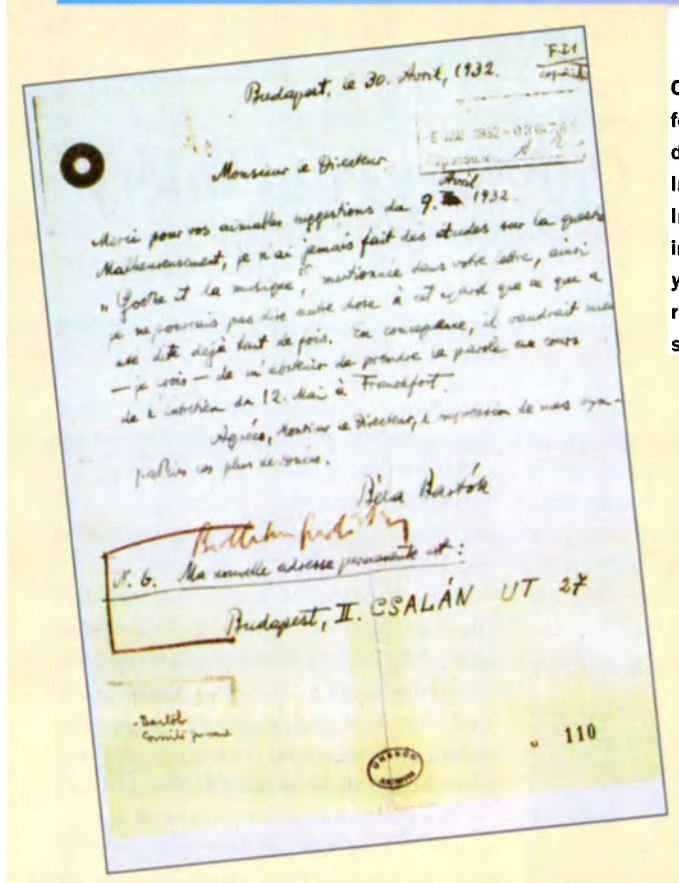 Budapest, le 30. Avril, 1932.
F.21
- 2 MAI 1932 -
Monsieur le Directeur
Avril
Merci pour vos aimables suggestions du 9. 1932.
Malheureusement, je n'ai jamais fait des études sur la
"Goethe et la musique", mentionnée dans votre lettre, ainsi
je ne pourrais pas dire autre chose à cet égard que ce qui a
été dite déjà tant de fois. En conséquence, il vaudrait
— je crois — de m'abstenir de prendre la parole au cours
de l'entretien du 12. Mai à Francfort.
Agréez, Monsieur le Directeur, l'expression de mes sym-
pathies les plus
Béla Bartók
N. b. Ma nouvelle adresse permanente est :
Budapest, II. CSALÁN UT 27
- Bartók
Comité
110
UNESCO
ARCHIVES